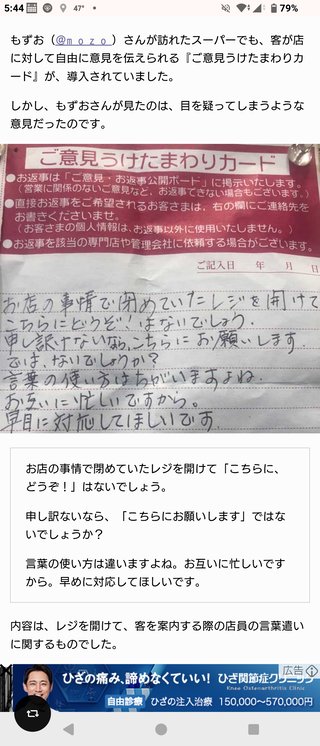 5:44
47°
79%
もずお（@ｍｏｚｏ）さんが訪れたスーパーでも、客が店
に対して自由に意見を伝えられる『ご意見うけたまわりカ
ード』が、導入されていました。
しかし、もずおさんが見たのは、目を疑ってしまうような
意見だったのです。
ご意見うけたまわりカード
●お返事は「ご意見・お返事公開ボード」に掲示いたします。
（営業に関係のないご意見など、お返事できない場合もございます。）
●直接お返事をご希望されるお客さまは、右の欄にご連絡先を
お書きくださいませ。
（お客さまの個人情報は、お返事以外に使用いたしません。）
●お返事を該当の専門店や管理会社に依頼する場合がございます。
ご記入日　年　月　日
お店の事情で閉めていたレジを開けて
こちらにどうぞ！はないでしょう。
申し訳けないなら、こちらにお願いします
では、ないでしょうか？
言葉の使い方はちがいますよね。
お互いに忙しいですから。
早目に対応してほしいです。
お店の事情で閉めていたレジを開けて「こちらに、
どうぞ！」はないでしょう。
申し訳ないなら、「こちらにお願いします」ではな
いでしょうか？
言葉の使い方は違いますよね。お互いに忙しいです
から。早めに対応してほしいです。
内容は、レジを開けて、客を案内する際の店員の言葉遣い
に関するものでした。
広告
ひざの痛み、諦めなくていい！ ひざ関節症クリニック
Knee Osteoarthritis Clinic
自由診療 ひざの注入治療 150,000〜570,000円